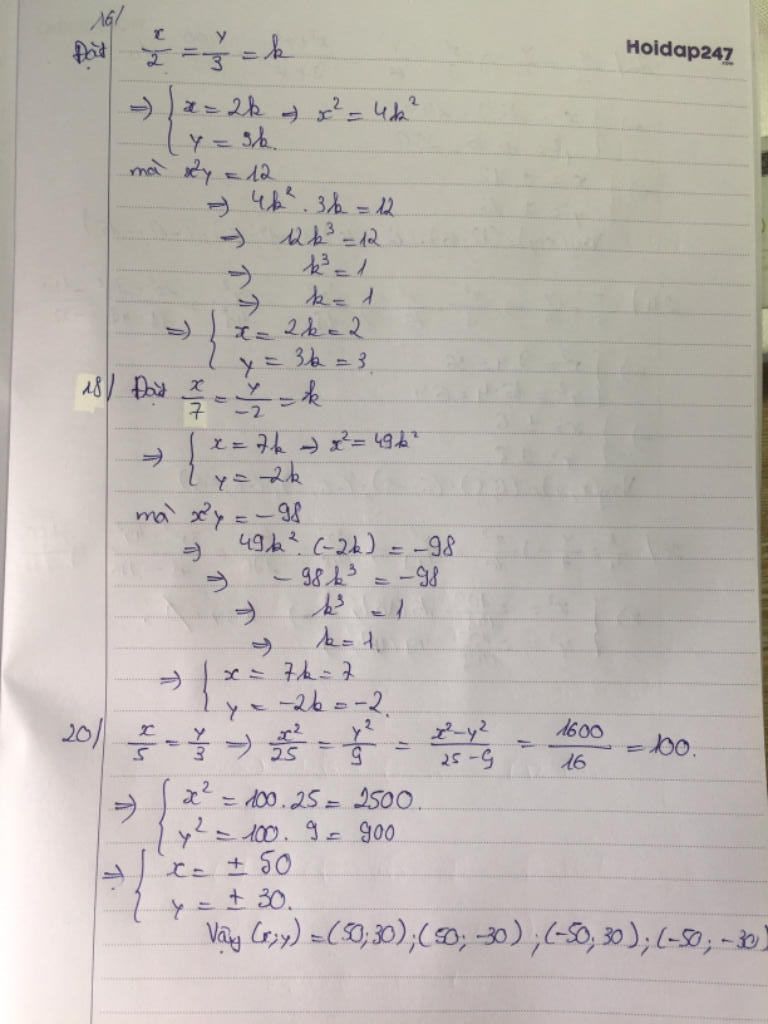 16/
Đặt x/2 = y/3 = k
Hoidap247.com
⇒ { x = 2k → x² = 4k²
y = 3k.
mà x²y = 12
⇒ 4k² . 3k = 12
⇒ 12k³ = 12
⇒ k³ = 1
⇒ k = 1
⇒ { x = 2k = 2
y = 3k = 3.
18/ Đặt x/7 = y/-2 = k
⇒ { x = 7k → x² = 49k²
y = -2k
mà x²y = -98
⇒ 49k² . (-2k) = -98
⇒ -98k³ = -98
⇒ k³ = 1
⇒ k = 1
⇒ { x = 7k = 7
y = -2k = -2.
20/ x/5 = y/3 ⇒ x²/25 = y²/9 = x²-y²/25-9 = 1600/16 = 100.
⇒ { x² = 100.25 = 2500.
y² = 100. 9 = 900
⇒ { x = ± 50
y = ± 30.
Vậy (x;y) = (50;30); (50; -30); (-50; 30); (-50; -30)